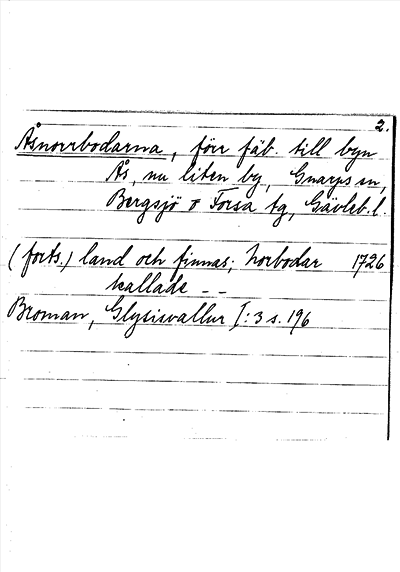 2.
Åsnorrbodarna, förr fäb. till byn
Ås, nu liten by, Gnarps sn,
Bergsjö o Forsa tg, Gävleb. l.
(forts.) land och finnas; Norbodar 1726
kallade - -
Broman, Glysisvallur I: 3 s. 196